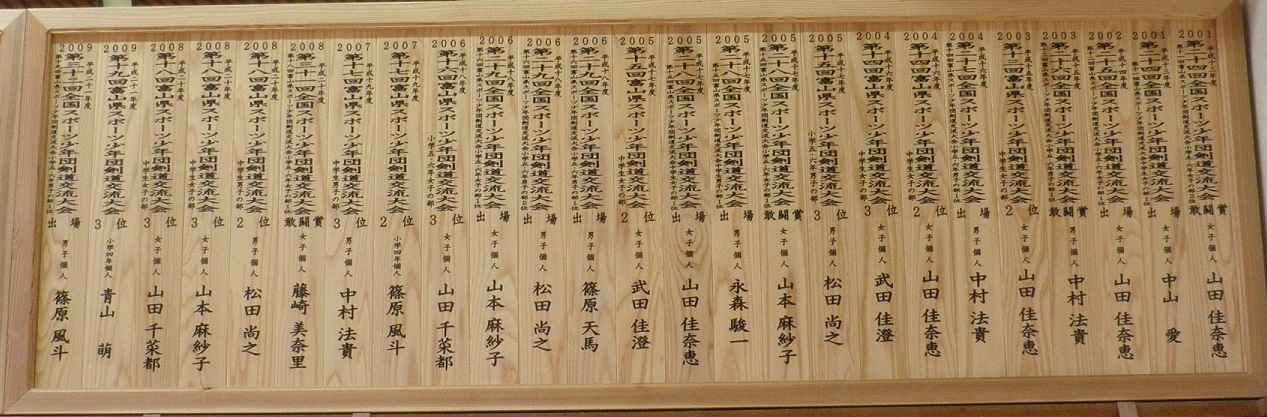 2001 平成十三年度 第二十四回全国スポーツ少年団剣道交流大会 敢闘賞 女子個人 山田 佳奈恵
2001 平成十三年度 第二十四回全国スポーツ少年団剣道交流大会 出場 女子個人 中山 愛
2002 平成十四年度 第二十五回全国スポーツ少年団剣道交流大会 出場 女子個人 山田 佳奈恵
2003 平成十五年度 第二十六回全国スポーツ少年団剣道交流大会 敢闘賞 男子個人 中村 法貴
2003 平成十五年度 第十三回富山県スポーツ少年団剣道交流大会 中学生女子の部 2位 女子個人 山田 佳奈恵
2004 平成十六年度 第二十七回全国スポーツ少年団剣道交流大会 出場 男子個人 中村 法貴
2004 平成十六年度 第十四回富山県スポーツ少年団剣道交流大会 中学生女子の部 2位 女子個人 山田 佳奈恵
2004 平成十六年度 第十四回富山県スポーツ少年団剣道交流大会 中学生女子の部 3位 女子個人 武田 佳澄
2005 平成十七年度 第十五回富山県スポーツ少年団剣道交流大会 小学五・六年男子の部 3位 男子個人 松田 尚之
2005 平成十七年度 第二十八回全国スポーツ少年団剣道交流大会 敢闘賞 女子個人 山本 麻紗子
2005 平成十七年度 第二十八回全国スポーツ少年団剣道交流大会 出場 男子個人 永森 駿一
2005 平成十七年度 第二十八回全国スポーツ少年団剣道交流大会 出場 女子個人 山田 佳奈恵
2005 平成十七年度 第十五回富山県スポーツ少年団剣道交流大会 中学生女子の部 2位 女子個人 武田 佳澄
2006 平成十八年度 第二十九回全国スポーツ少年団剣道交流大会 出場 男子個人 篠原 天馬
2006 平成十八年度 第二十九回全国スポーツ少年団剣道交流大会 出場 男子個人 松田 尚之
2006 平成十八年度 第二十九回全国スポーツ少年団剣道交流大会 出場 女子個人 山本 麻紗子
2006 平成十八年度 第十六回富山県スポーツ少年団剣道交流大会 小学五・六年女子の部 3位 女子個人 山田 千菜都
2007 平成十九年度 第十七回富山県スポーツ少年団剣道交流大会 2位 小学四年個人 篠原 風斗
2007 平成十九年度 第十七回富山県スポーツ少年団剣道交流大会 中学生男子の部 3位 男子個人 中村 法貴
2008 平成二十年度 第三十一回全国スポーツ少年団剣道交流大会 敢闘賞 女子個人 藤崎 美奈里
2008 平成二十年度 第十八回富山県スポーツ少年団剣道交流大会 中学生男子の部 2位 男子個人 松田 尚之
2008 平成二十年度 第十八回富山県スポーツ少年団剣道交流大会 中学生女子の部 3位 女子個人 山本 麻紗子
2008 平成二十年度 第十八回富山県スポーツ少年団剣道交流大会 中学生女子の部 3位 女子個人 山田 千菜都
2009 平成二十一年度 富山県スポーツ少年団剣道交流大会 3位 小学四年個人 青山 萌
2009 平成二十一年度 第三十二回全国スポーツ少年団剣道交流大会 出場 男子個人 篠原 風斗